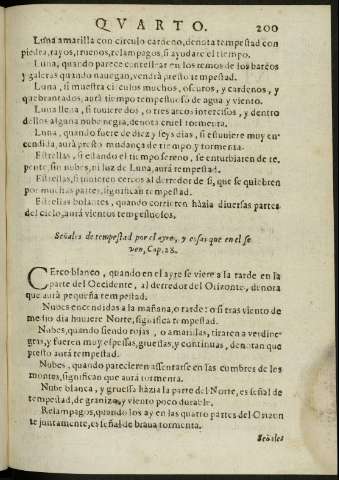 QVARTO. 200
Luna amarilla con circulo cardeno, denota tempestad con
piedra, rayos, truenos, relampagos, si ayudare el tiempo.
Luna, quando parece centellear en los remos de los barcos
y galeras quando nauegan, vendrà presto tempestad.
Luna, si muestra circulos muchos, oscuros, y cardenos, y
quebrantados, aurà tiempo tempestuoso de agua y viento.
Luna llena, si tuuiere dos, o tres arcos intercisos, y dentro
dellos alguna nube negra, denota cruel tormenta.
Luna, quando fuere de diez y seys dias, si estuuiere muy en-
cendida, aurà presto mudança de tiempo y tormenta.
Estrellas, si estando el tiempo sereno, se enturbiaren de re-
pente, sin nubes, ni luz de Luna, aurà tempestad.
Estrellas, si tuuieren cercos al derredor de si, que se quiebren
por muchas partes, significan tempestad.
Estrellas bolantes, quando corrieren hàzia diuersas partes
del cielo, aurà vientos tempestuosos.
Señales de tempestad por el ayre, y cosas que en el se
ven, Cap. 28.
CErco blanco, quando en el ayre se viere a la tarde en la
parte del Occidente, al derredor del Orizonte, denota
que aurà pequeña tempestad.
Nubes encendidas a la mañana, o tarde: o si tras viento de
medio dia huuiere Norte, significa tempestad.
Nubes, quando siendo rojas, o amarillas, tiraren a verdine-
gras, y fueren muy espessas, gruessas, y continuas, denotan que
presto aurà tempestad.
Nubes, quando parecieren assentarse en las cumbres de los
montes, significan que aurà tormenta.
Nube blanca, y gruessa hàzia la parte del Norte, es señal de
tempestad, de granizo, y viento poco durable.
Relampagos, quando los ay en las quatro partes del Orizon
te juntamente, es señal de braua tormenta.
Señales